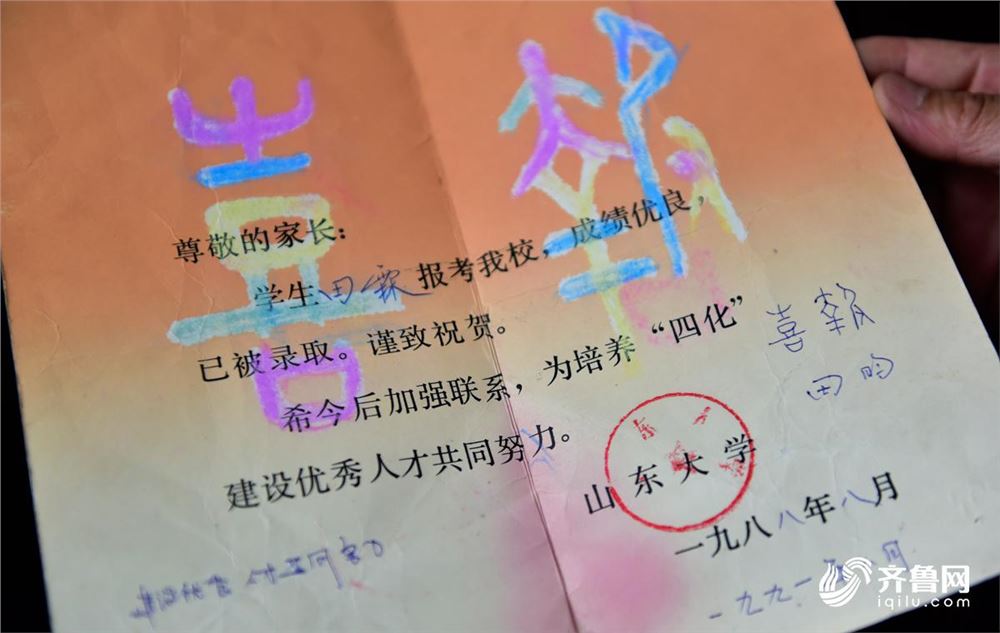 喜報
尊敬的家长：
学生田霖报考我校，成绩优良，
已被录取。谨致祝贺。
希今后加强联系，为培养“四化”
建设优秀人才共同努力。
喜報
田昀
山东大学
一九八八年八月
齐鲁网
iqilu.com